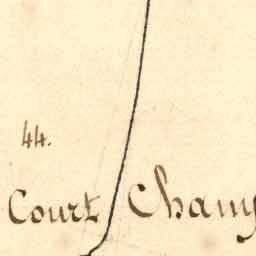 44.
Court Cham